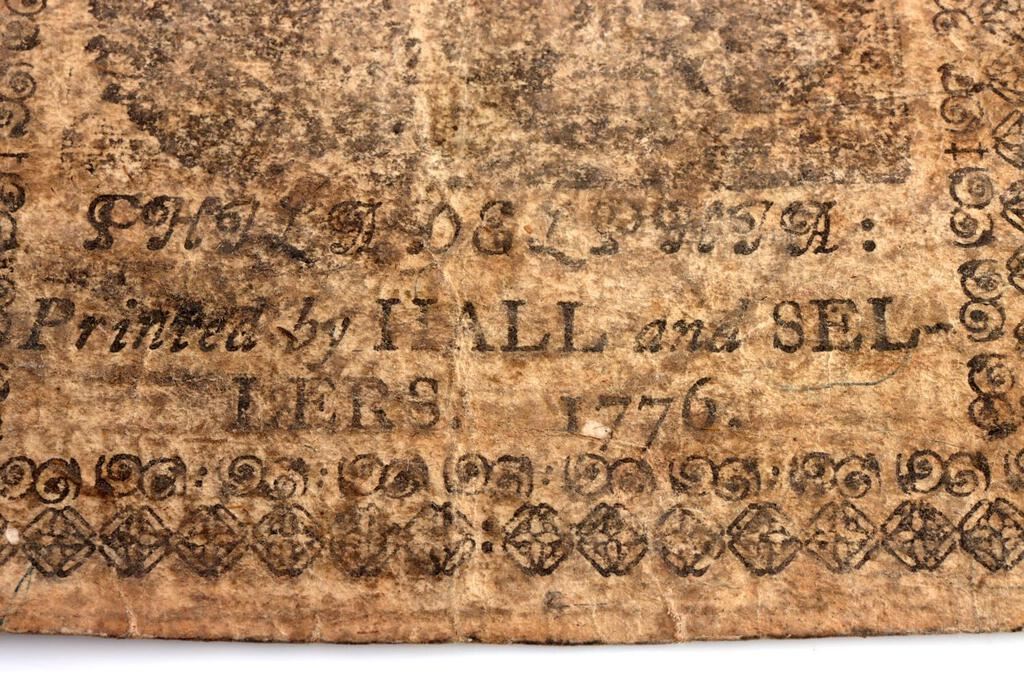 PHILADELPHIA:
Printed by HALL and SEL-
LERS. 1776.